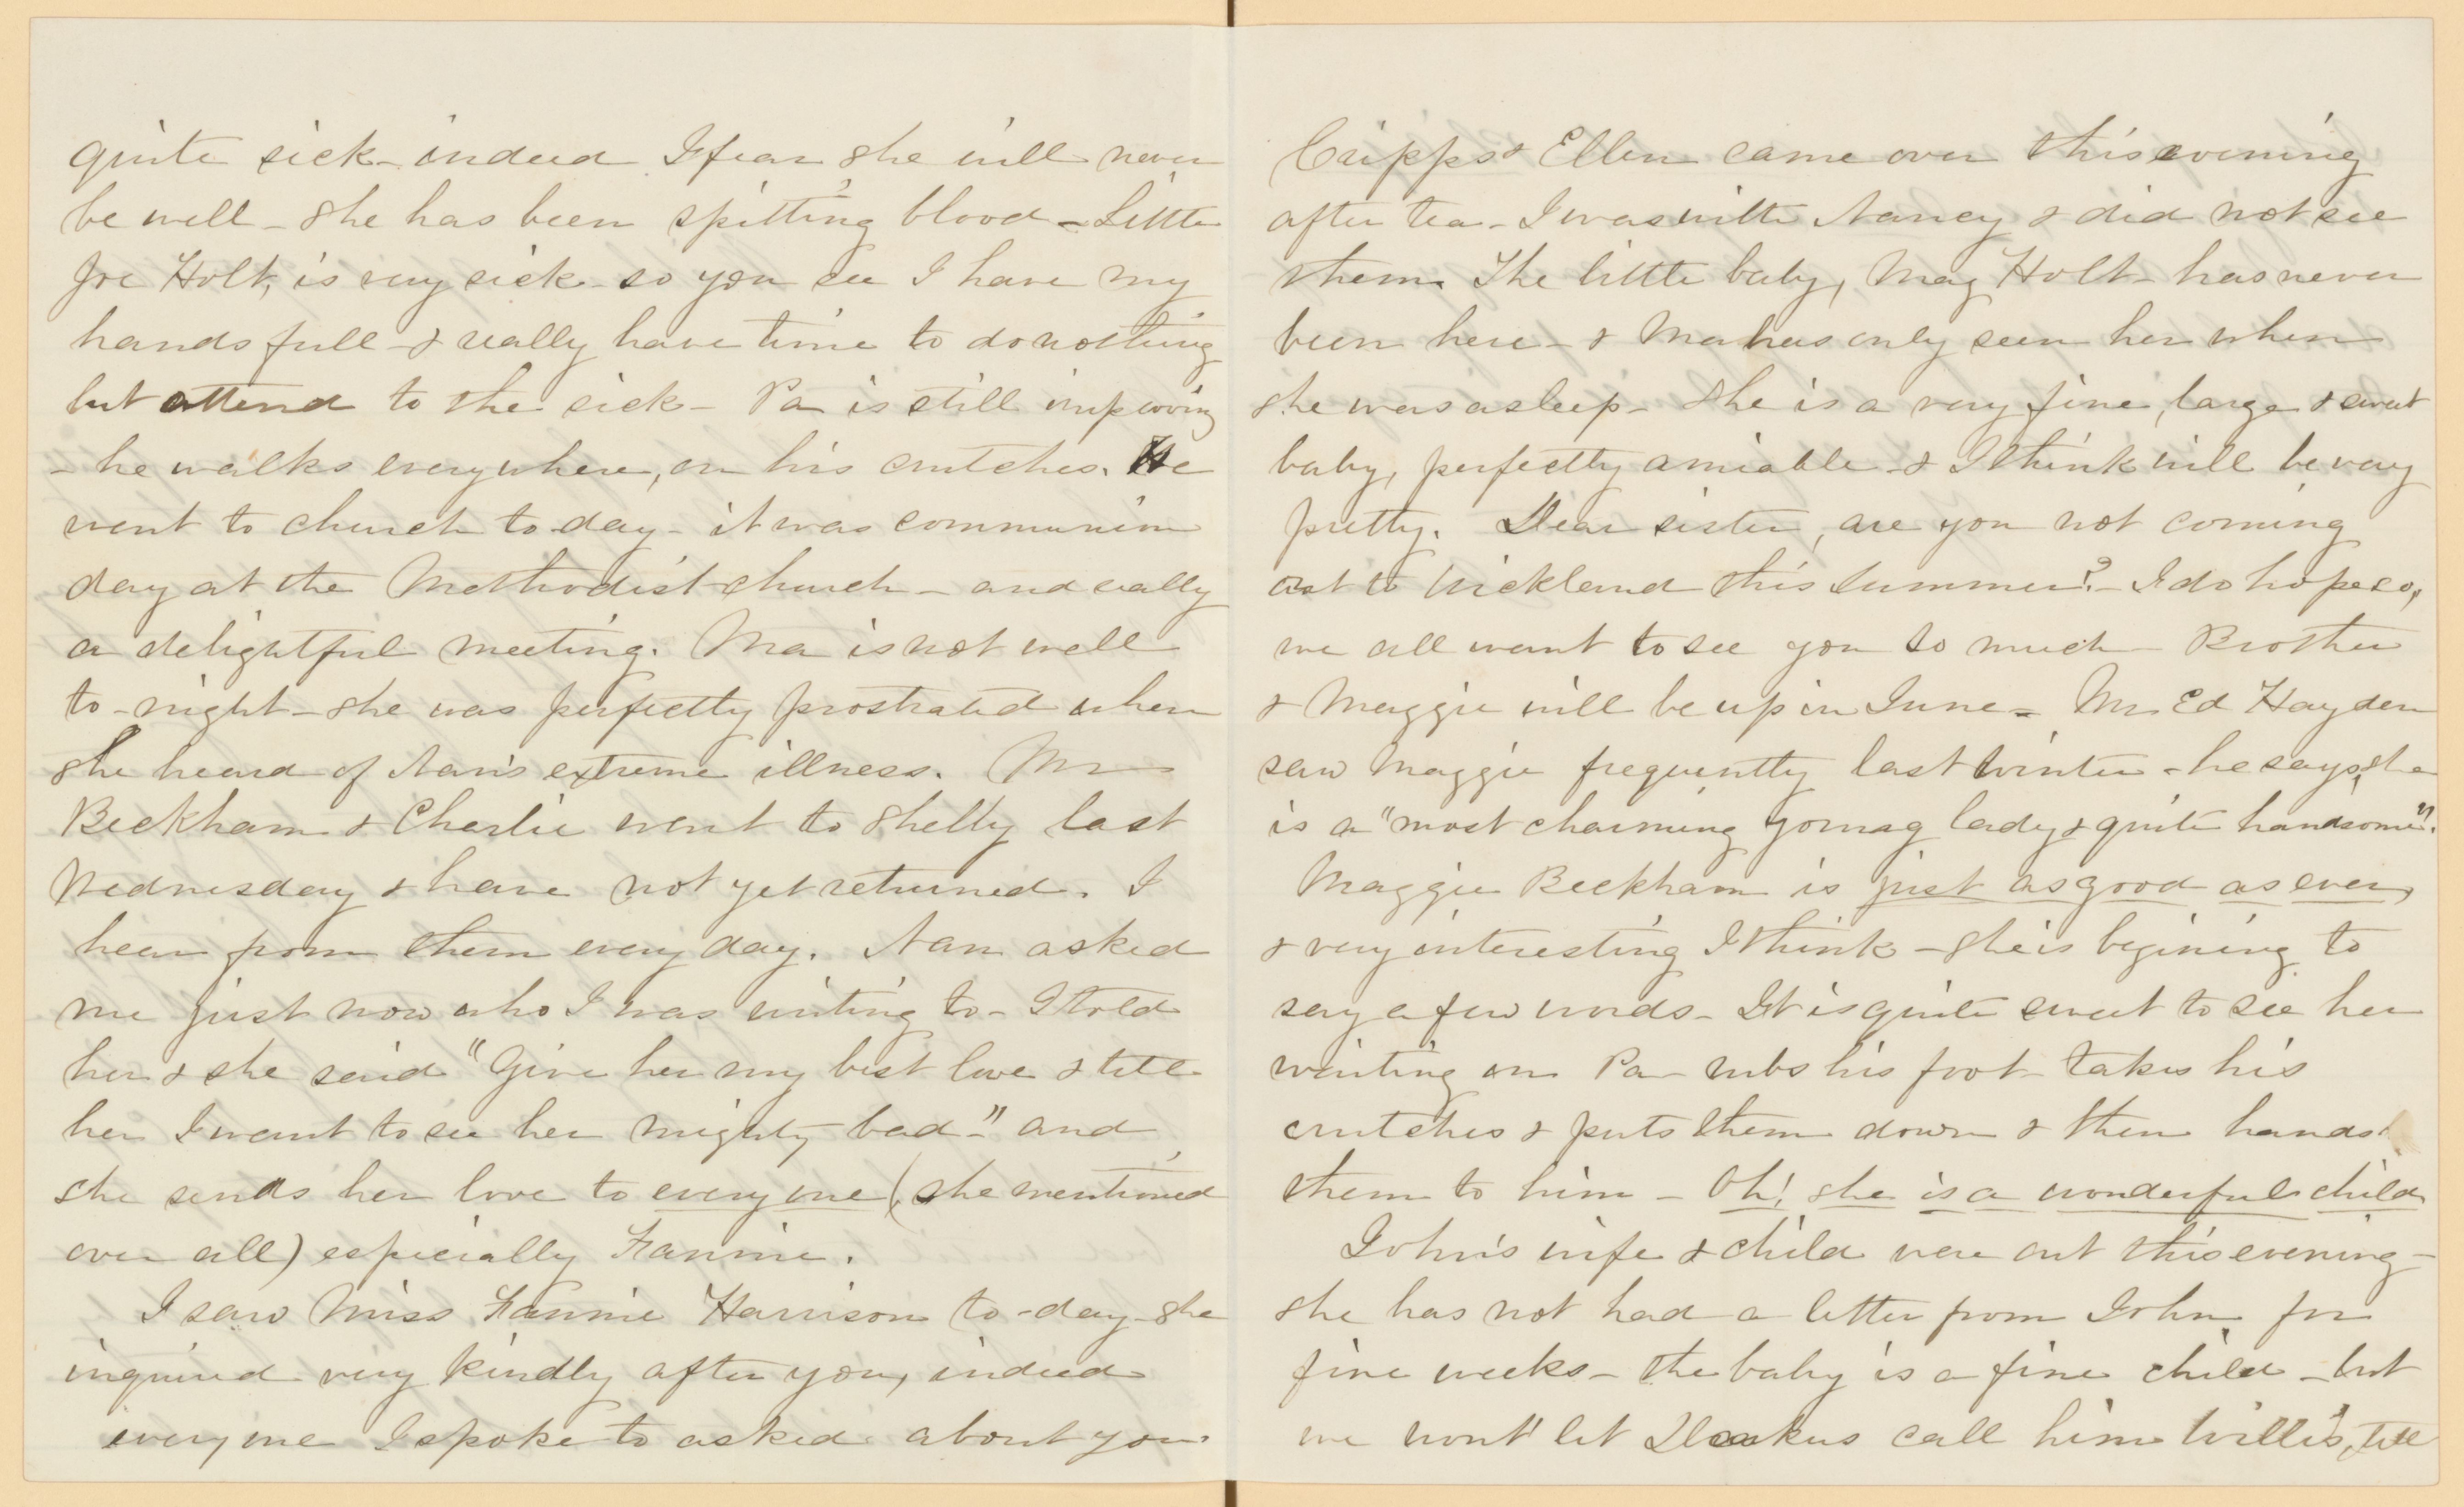 quite sick - indeed I fear she will never
be well - she has been spitting blood - Little
Joe Holt, is very sick - so you see I have my
hands full - & really have time to do nothing
but attend to the sick - Pa is still improving
- he walks everywhere, on his crutches. He
went to church to-day - it was communion
day at the Methodist church - and really
a delightful meeting. Ma is not well
to-night - she was perfectly prostrated when
she heard of Nan's extreme illness. Mr
Beckham & Charlie went to Shelby last
Wednesday & have not yet returned. I
hear from them every day. Nan asked
me just now who I was writing to - I told
her & she said "Give her my best love & tell
her I want to see her mighty bad -" and
she sends her love to every one (she mentioned
over all) especially Fannie.
I saw Miss Fannie Harrison to-day - she
inquired very kindly after you, indeed
every one I spoke to asked about you.
Cripps & Ellen came over this evening
after tea - I was with Nancy & did not see
them. The little baby, Mag Holt - has never
been here - & Ma has only seen her when
she was asleep - She is a very fine, large & sweet
baby, perfectly amiable - & I think will be very
pretty. Dear sister, are you not coming
out to Wickland this summer? - I do hope so,
we all want to see you so much - Brother
& Maggie will be up in June - Mr Ed Hayden
saw Maggie frequently last winter - he says, she
is a "most charming young lady & quite handsome".
Maggie Beckham is just as good as ever,
& very interesting I think - she is begining to
say a few words - It is quite sweet to see her
waiting on Pa - rubs his foot - takes his
crutches & puts them down & then hands
them to him - Oh! she is a wonderful child
John's wife & child were out this evening -
she has not had a letter from John for
five weeks - the baby is a fine child - but
we wont let call him Willis, till